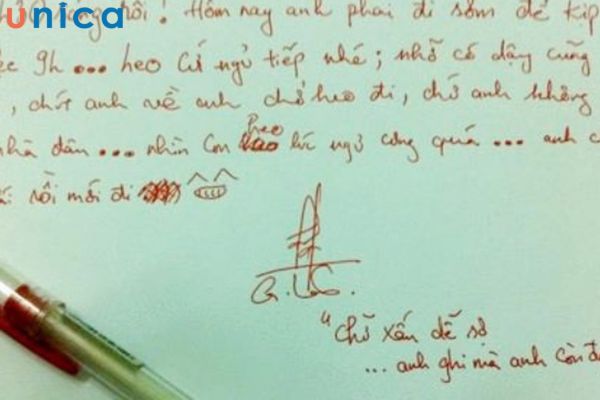 unica
rồi! Hôm nay anh phải đi sớm để kịp
9h ... heo cứ ngủ tiếp nhé; nhỡ có dậy cũng
, chứt anh về anh chở heo đi, chứ anh không
nhà dân ... nhìn con heo lúc ngủ cưng quá ... anh c
rồi mới đi
"Chữ xấu dễ sợ
... anh ghi mà anh còn đ